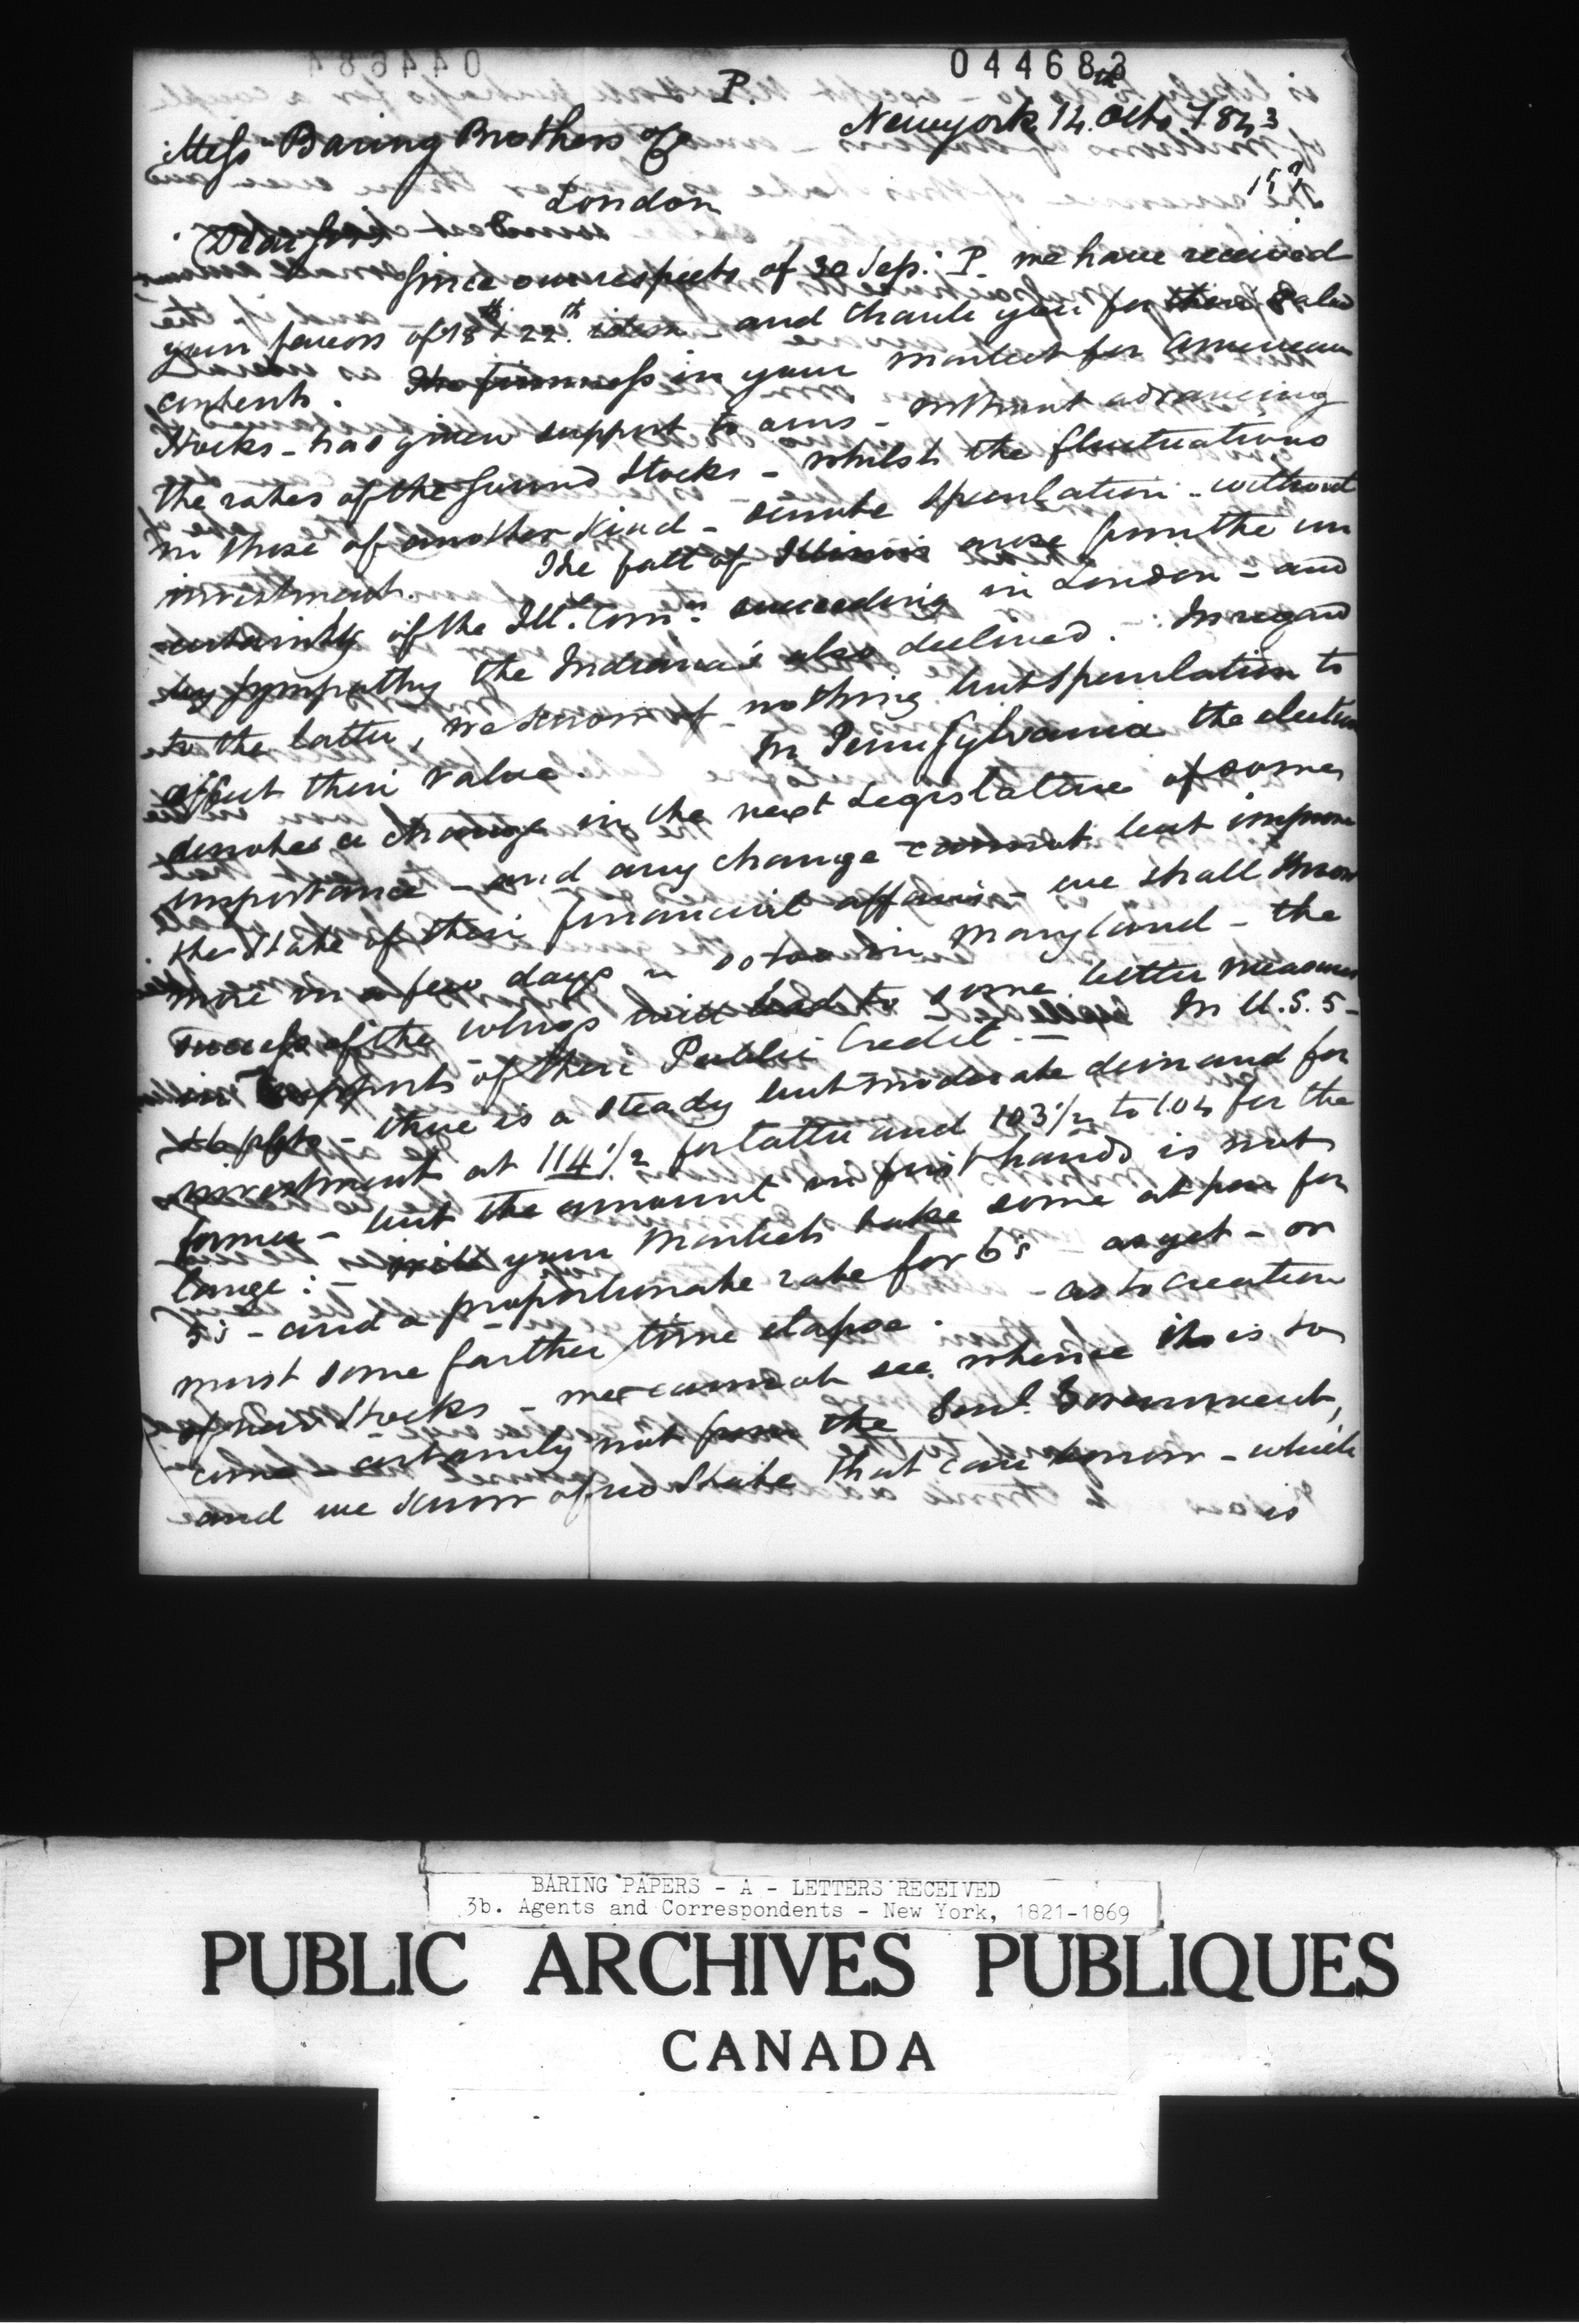 044683
P.
Newyork 14th Octo 1843
Mess Baring Brothers & Co
London
Dear Sirs
Since our respects of 30 Sep. P. we have received
your favors of 18th & 22th and thank you for their
contents. The firmness in your market for American
Stocks - has given support to ours - without advancing
the rates of the sound Stocks - whilst the fluctuations
in those of another Kind - denote Speculation - without
investment. The fall of Illinois arose from the un
certainty of the Ill. Comrs succeeding in London - and
by sympathy the Indiana's also declined. In regard
to the latter, we know of nothing but Speculation to
affect their value. In Pennsylvania the election
denotes a change in the next Legislature of some
importance - and any change cannot but improve
the State of their financial affairs - we shall know
more in a few days - so too in Maryland - the
success of the whigs will lead to some better measures
in support of their Public Credit. - In U.S. 5 -
& 6 pcts - there is a steady but moderate demand for
investment at 114 1/2 for latter and 103 1/2 to 104 for the
former - but the amount in first hands is not
large: - will your Markets take some at par for
5's - and a proportionate rate for 6's - as yet - or
must some farther time elapse. - as to creation
of new Stocks - we cannot see whence it is to
come - certainly not from the Genl. Government,
and we know of no State that can borrow - which
is
BARING PAPERS - A - LETTERS RECEIVED
3b. Agents and Correspondents - New York, 1821-1869
PUBLIC ARCHIVES PUBLIQUES
CANADA